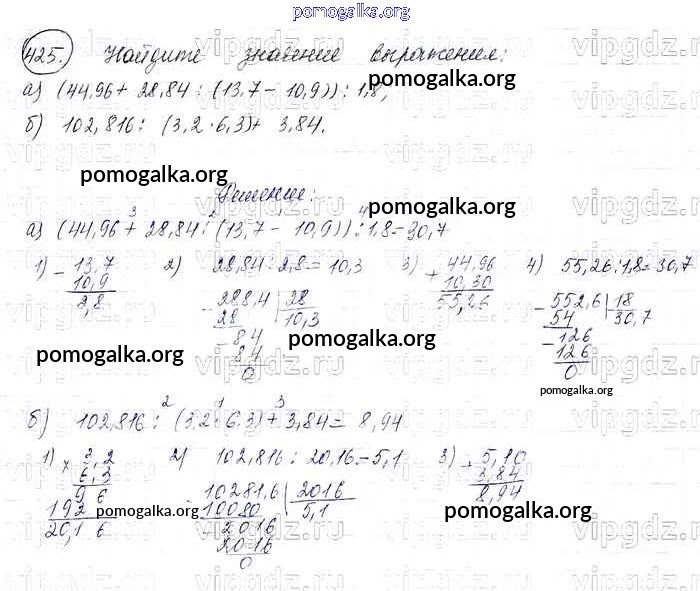 pomogalka.org
425. Найдите значение выражения:
а) (44,96 + 28,84 : (13,7 - 10,9)) : 1,8;
б) 102,816 : (3,2 · 6,3) + 3,84.
Решение:
а) (44,96 + 28,84 : (13,7 - 10,9)) : 1,8 = 30,7
3 2 4
1) 2) 28,84 : 2,8 = 10,3 3) 4) 55,26 : 1,8 = 30,7
- 13,7 + 44,96
10,9 - 288,4 | 28 10,30 - 552,6 | 18
2,8 28 10,3 55,26 54 30,7
- 84 - 126
84 126
0 0
б) 102,816 : (3,2 · 6,3) + 3,84 = 8,94
2 1 3
1) × 3,2 2) 102,816 : 20,16 = 5,1 3) + 5,10
6,3 3,84
9 6 - 10281,6 | 2016 8,94
192 10080 5,1
20,16 2016
2016
0
pomogalka.org
pomogalka.org
pomogalka.org
pomogalka.org
pomogalka.org
pomogalka.org
pomogalka.org
pomogalka.org
vipgdz.ru